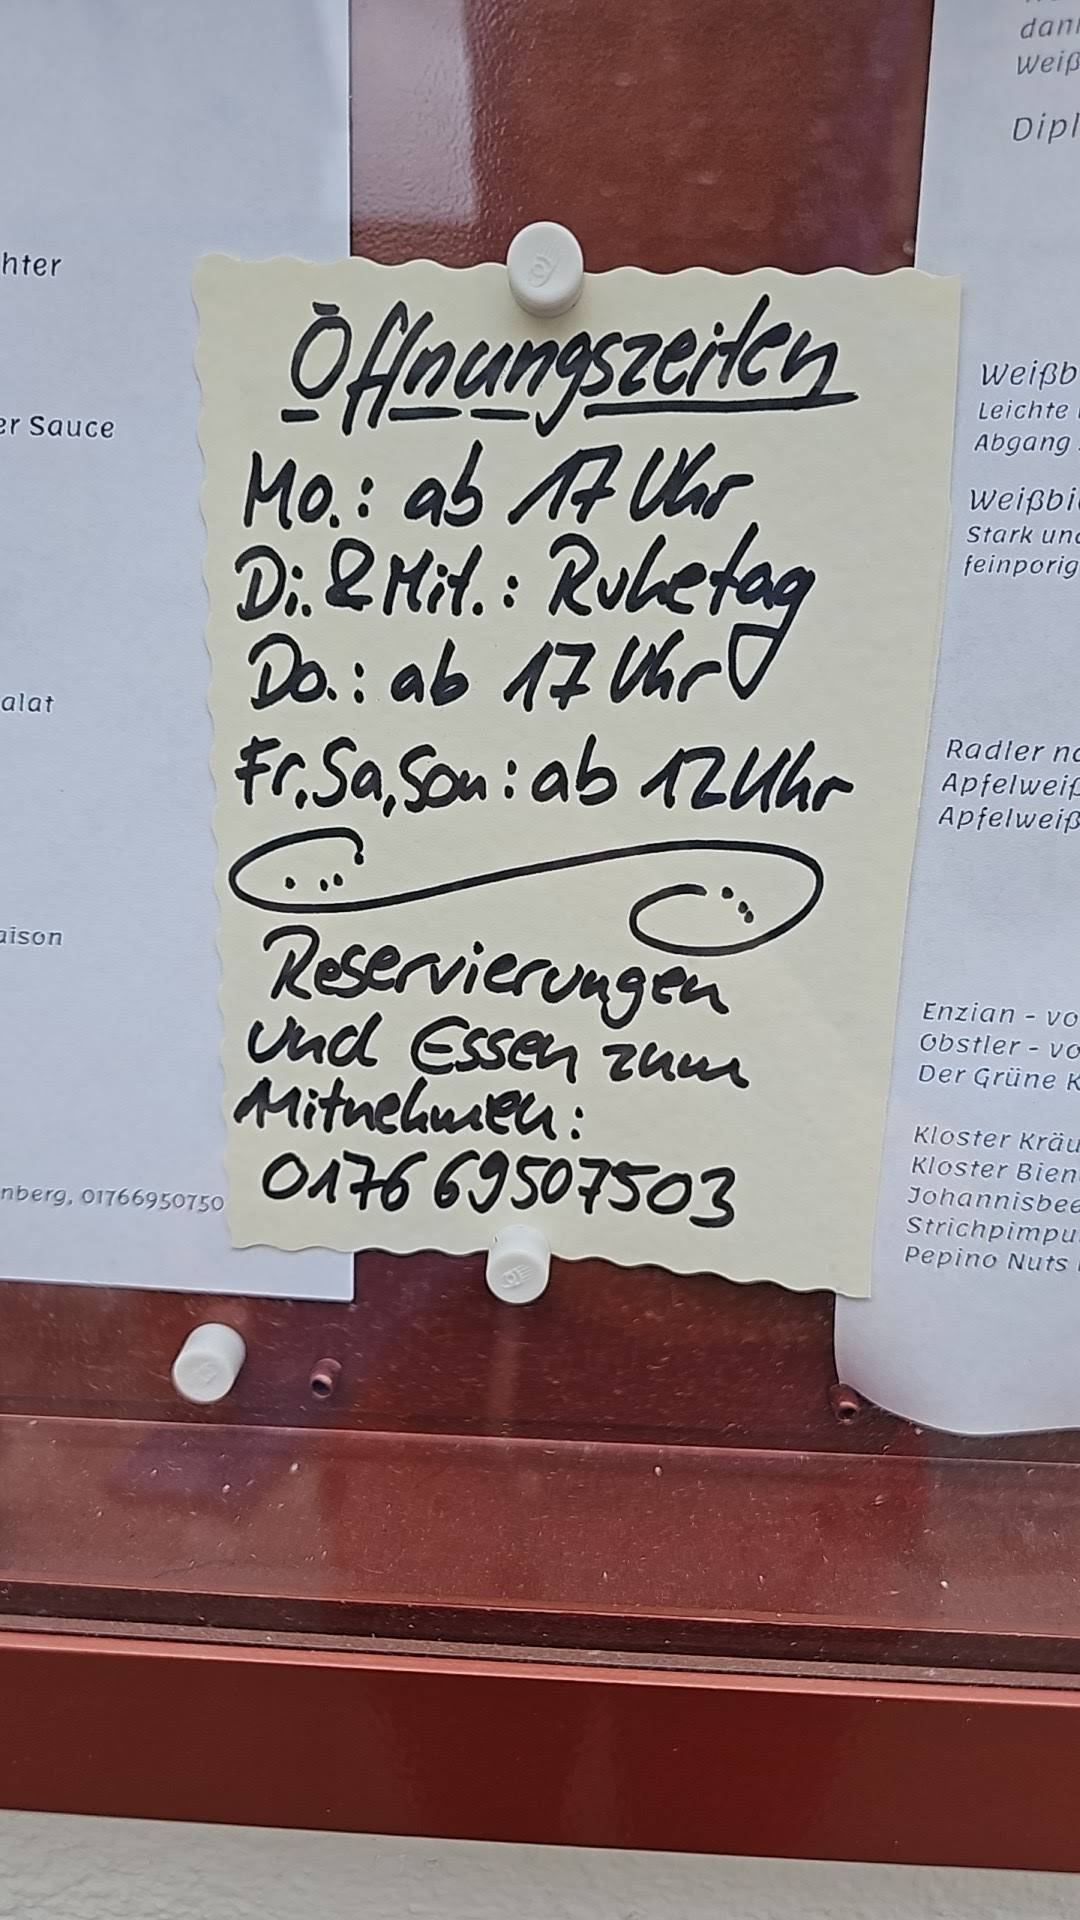 hter
er Sauce
alat
aison
nberg, 0176695070
Öffnungszeiten
Mo.: ab 17 Uhr
Di. & Mit.: Ruhetag
Do.: ab 17 Uhr
Fr, Sa, Son: ab 12 Uhr
Reservierungen
und Essen zum
Mitnehmen:
0176 69507503
dann
Weiß
Dipl
Weißb
Leichte
Abgang
Weißbi
Stark und
feinporig
Radler na
Apfelweiß
Apfelweiß
Enzian - vo
Obstler - vo
Der Grüne K
Kloster Kräu
Kloster Bien
Johannisbee
Strichpimpu
Pepino Nuts